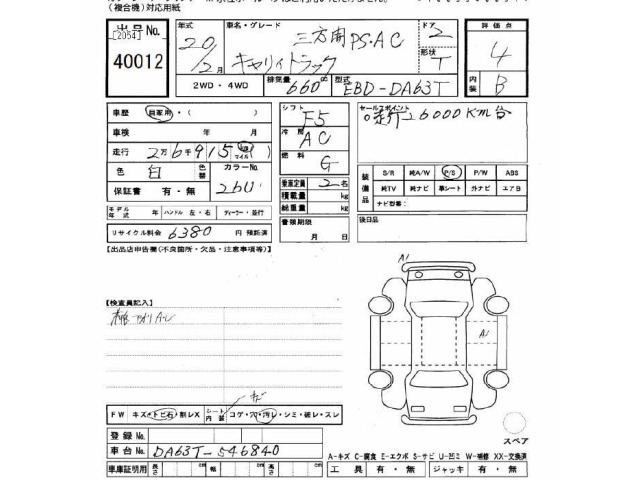 (複合機)対応用紙
出品No. [2054] 40012
年式 20/2月
車名・グレード 三方開 PS・AC
キャリィトラック
ドア 2
形状 T
評価点 4
内装 B
2WD・4WD
排気量 660
型式 EBD-DA63T
車歴 自家用・( )
シフト F5
セールスポイント
走行26000KM台
車検 年 月
冷房 AC
走行 2万6千915 マイル
燃料 G
色 白 色替 カラーNo. 26U
保証書 有・無
乗車定員 2名
積載量 kg
総重量 kg
装備品 S/R 純A/W P/S P/W ABS
純TV 純ナビ 革シート 外ナビ エアB
ナビ型番:
モデル年式 年 ハンドル 左・右 ディーラー・並行
書類期限 月 日
後日品
リサイクル料金 6380 円 預託済
【出品店申告欄(不良箇所・欠品・注意事項等)】
【検査員記入】
A1
A1
FW キズ・トビ石・割レX シート内装 コゲ・穴・汚レ・シミ・破レ・スレ
登録No.
車台No. DA63T-546840
スペア
A-キズ C-腐食 E-エクボ S-サビ U-凹ミ W-補修 XX-交換済
車庫証明用 長さ cm 幅 cm 高さ cm 工具 有・無 ジャッキ 有・無